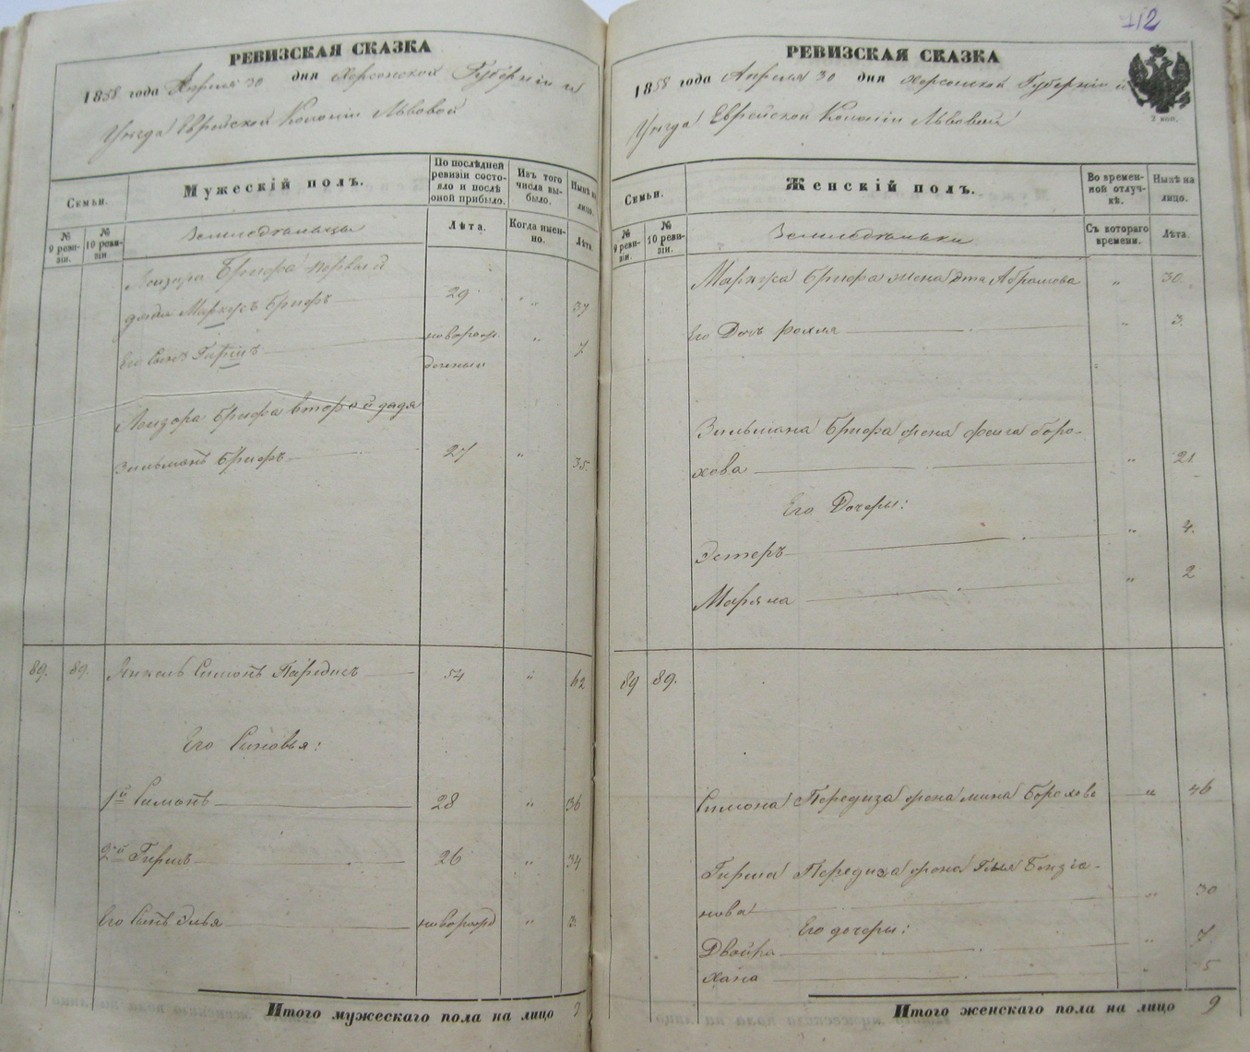 РЕВИЗСКАЯ СКАЗКА
1858 года Апреля 30 дня Херсонской Губерніи и
Уезда Еврейской Колоніи Львовой
Семьи.
Мужескій полъ.
По послѣдней ревизіи состояло и послѣ оной прибыло.
Изъ того числа выбыло.
Нынѣ на лицо.
№ 9 ревизіи.
№ 10 ревизіи.
Лѣта.
Когда именно.
Лѣта
Земледѣльцы
Лейзора Брифа первый
дядя Маркусъ Брифъ 29 " 37
Его Сынъ Гиршъ новорож " 7
денный
Лейзора Брифа второй дядя
Зильманъ Брифъ 27 " 35.
89. 89. Симонъ 54 " 62
Его Сыновья:
1й Симонъ 28 " 36
2й Гиршъ 26 " 34
Его Сынъ Элья новорожд " 3
Итого мужескаго пола на лицо 9
112
РЕВИЗСКАЯ СКАЗКА
1858 года Апреля 30 дня Херсонской Губерніи и
Уезда Еврейской Колоніи Львовой
2 коп.
Семьи.
Женскій полъ.
Во временной отлучкѣ.
Нынѣ на лицо.
№ 9 ревизіи.
№ 10 ревизіи.
Съ котораго времени.
Лѣта.
Земледѣльки
Маркуса Брифа жена Абрамова " 30.
Его Дочь рохля " 3.
Зильмана Брифа жена фейга боро-
хова " 21
Его Дочеры:
Эстеръ " 4.
Маріяна " 2
89 89.
Симона Передиза жена мина Борохова " 46
Гирша Передиза жена Бензіа-
нова " 30
Его дочеры:
Двойра " 7.
Хана " 5
Итого женскаго пола на лицо 9